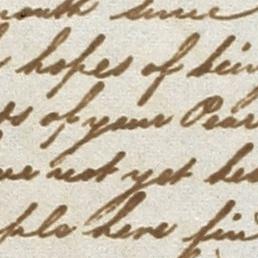 mouth since
hopes of bein
ts of your Pear
ve not yet bee
ple here fin